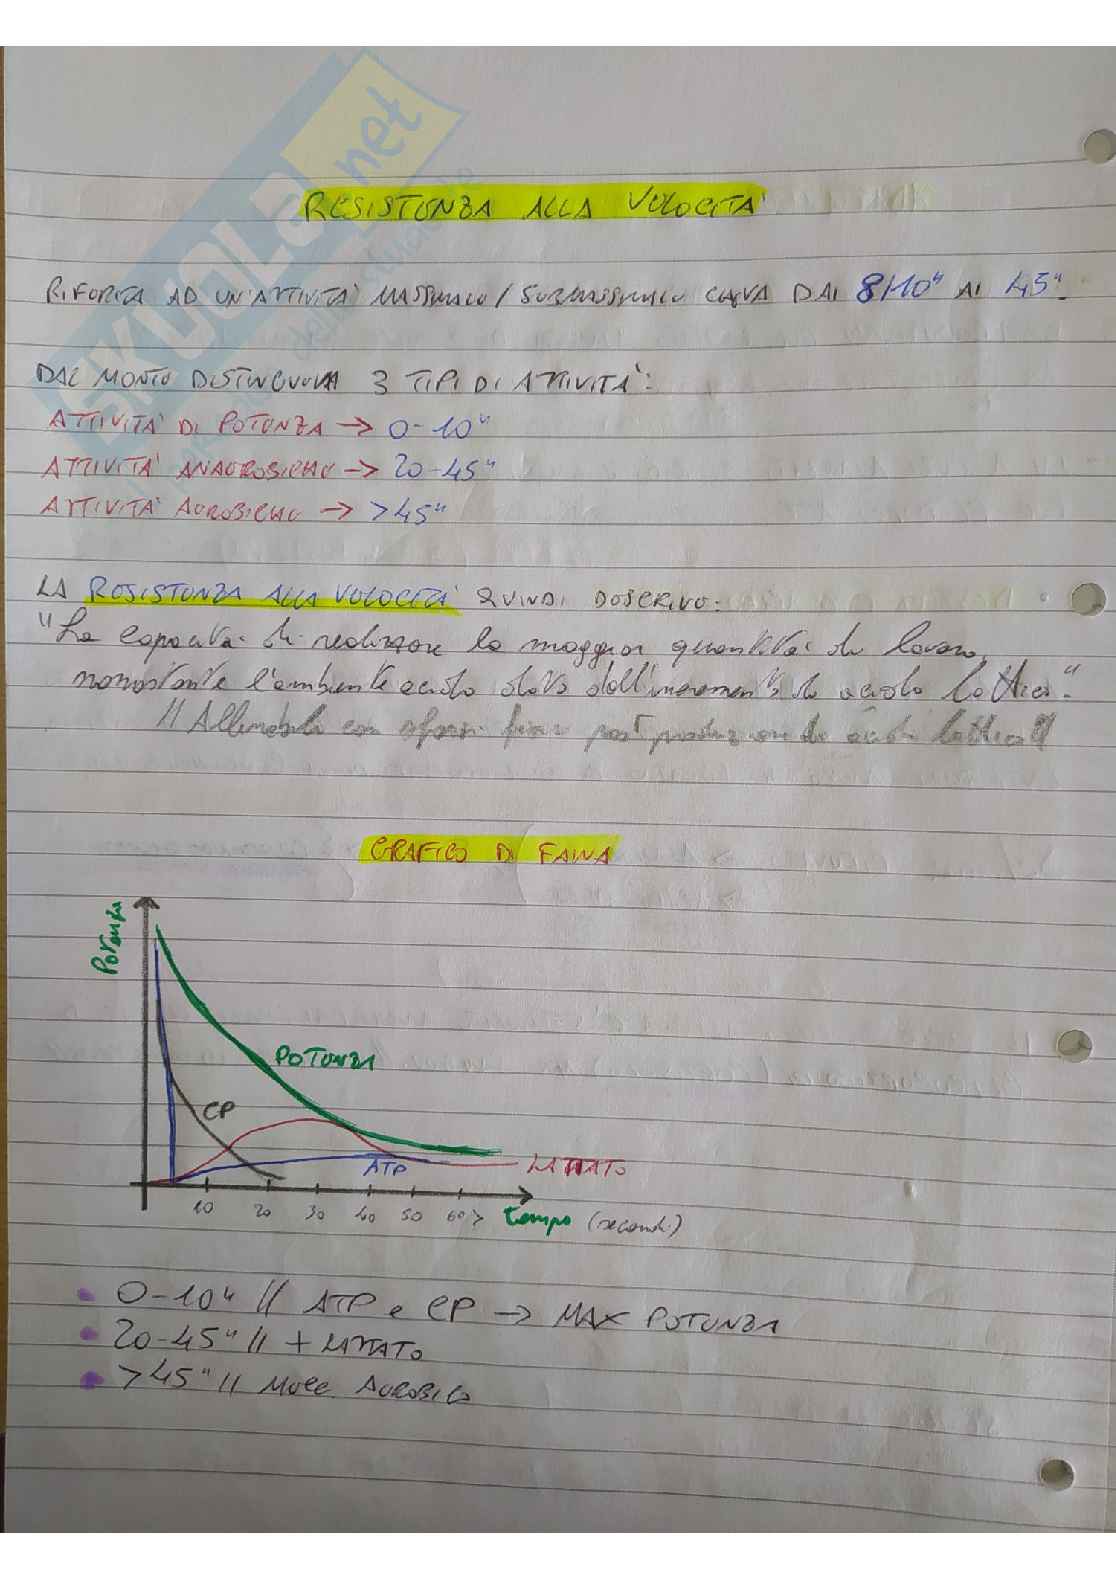 SKUOLA.net
RESISTENZA ALLA VELOCITA'
RIFERITA AD UN'ATTIVITA' MASSIMALE/SUBMASSIMALE CHE VA DAI 8/10" AI 45".
DAL MONTE DISTINGUEVA 3 TIPI DI ATTIVITA':
ATTIVITA' DI POTENZA → 0-10"
ATTIVITA' ANAEROBICHE → 20-45"
ATTIVITA' AEROBICHE → >45"
LA RESISTENZA ALLA VELOCITA' QUINDI DESCRIVE:
"La capacita' di realizzare la maggior quantita' di lavoro,
nonostante l'ambiente acido dato dall'incremento di acido lattico."
// Allenabile con sforzi post produzione di acido lattico //
GRAFICO DI FAINA
Potenza
POTENZA
CP
ATP
LATTATO
10 20 30 40 50 60> tempo (secondi)
0-10" // ATP e CP → MAX POTENZA
20-45" // + LATTATO
>45" // MECC AEROBICO